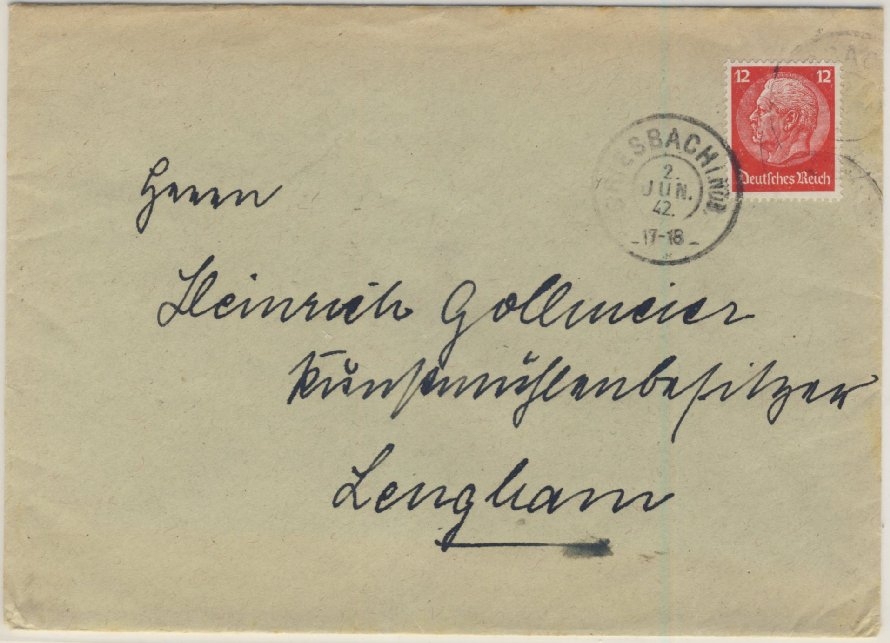 12 12
Deutsches Reich
GRIESBACH i. NDB.
2.
JUN.
42.
-17-18-
Herrn
Heinrich Gollmeier
Kunstmühlenbesitzer
Lengham